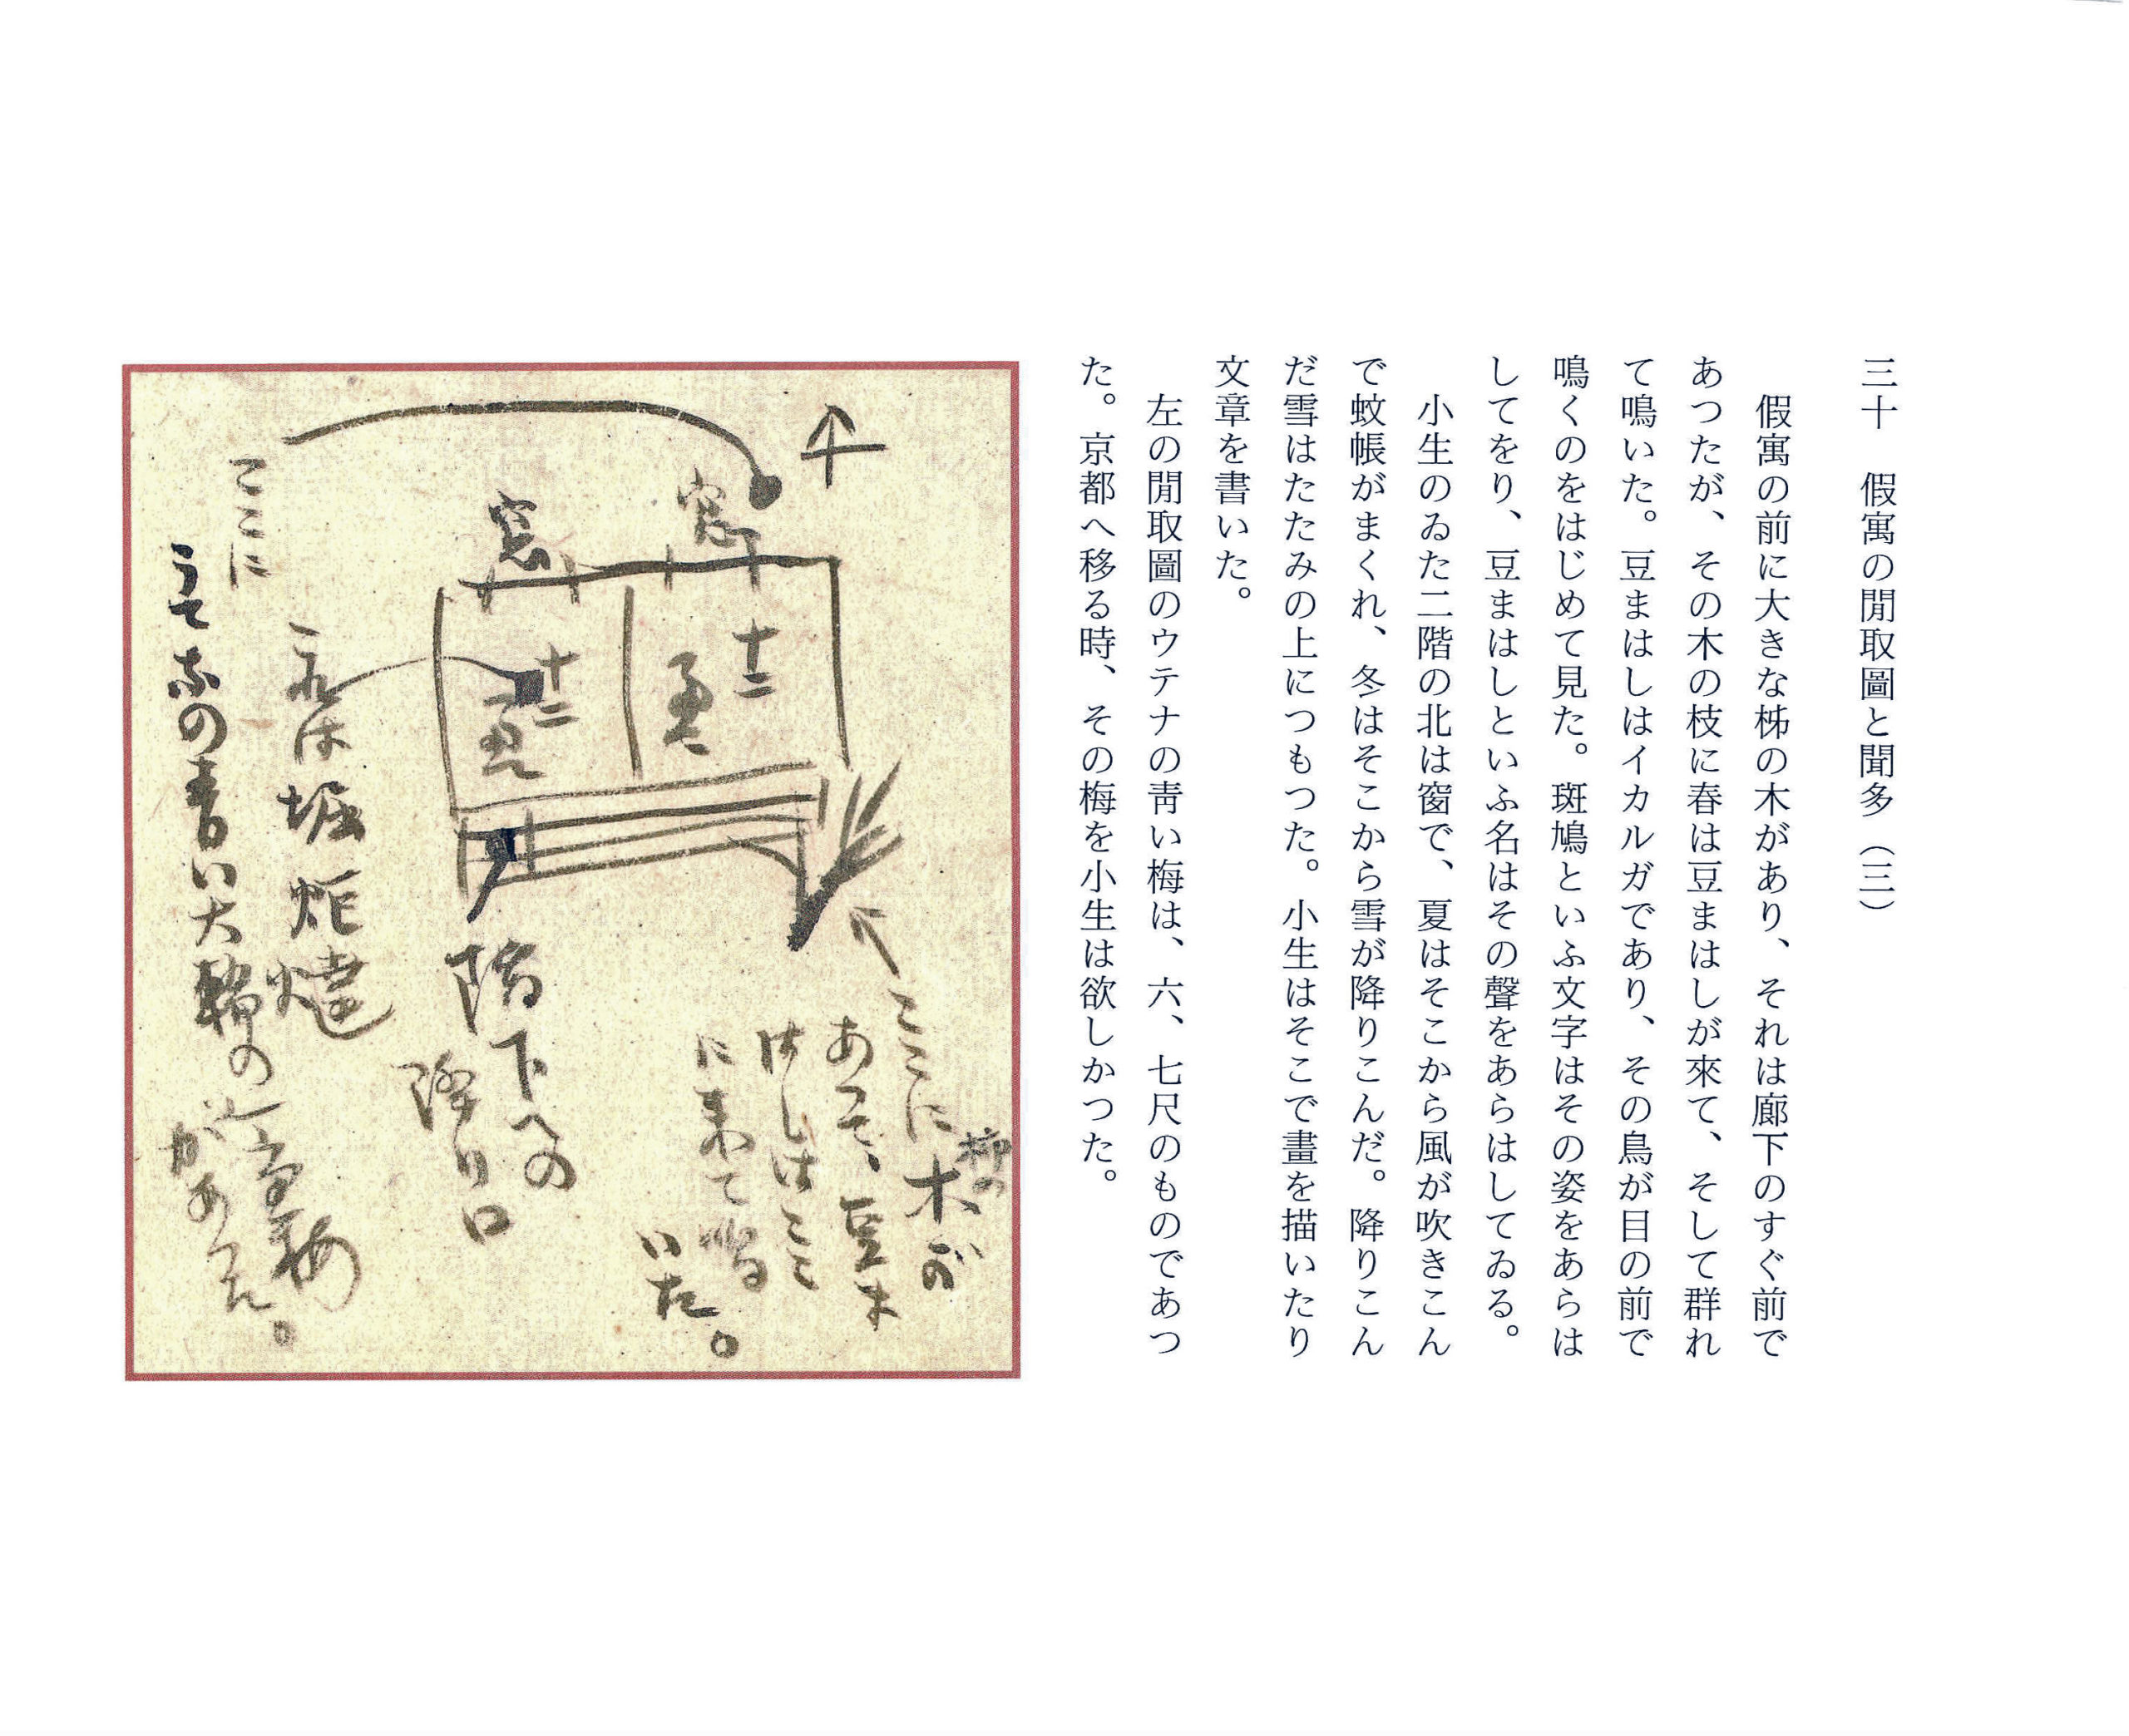 三十　假寓の閒取圖と聞多（三）
　假寓の前に大きな柹の木があり、それは廊下のすぐ前で
あつたが、その木の枝に春は豆まはしが來て、そして群れ
て鳴いた。豆まはしはイカルガであり、その鳥が目の前で
鳴くのをはじめて見た。斑鳩といふ文字はその姿をあらは
してをり、豆まはしといふ名はその聲をあらはしてゐる。
　小生のゐた二階の北は窗で、夏はそこから風が吹きこん
で蚊帳がまくれ、冬はそこから雪が降りこんだ。降りこん
だ雪はたたみの上につもつた。小生はそこで畫を描いたり
文章を書いた。
　左の閒取圖のウテナの靑い梅は、六、七尺のものであつ
た。京都へ移る時、その梅を小生は欲しかつた。
窓
窓
十二
畳
十二
畳
ここに柿の木が
あつて、豆ま
はしはここ
に来て鳴
いた。
階下への
降り口
これは堀炬燵
ここに
うてなの青い大輪の
梅
があつた。